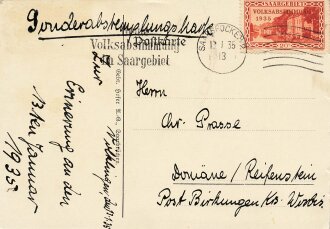 Sonderabstemplungskarte
Postkarte
Volksabstimmung
im Saargebiet
SAARBRÜCKEN
13
SAARGEBIET
VOLKSABSTIMMUNG
1935
Zur
Erinnerung an den
13ten Januar
1935
Herrn
Chr. Prasse
Domäne / Reifenstein
Post Birkungen Kr. Worbis